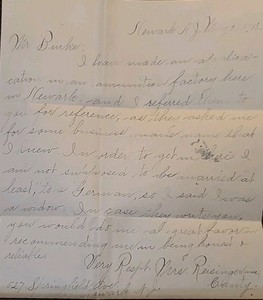 Newark N.J.
Mr. Burke,
I have made an appli-
cation in an ammunition factory here
in Newark, and I refered them to
you for reference, as they asked me
for some business man's name that
I knew. In order to get in
am not supposed to be married at
least, to a German, so I said I was
a widow. In case they write you,
you would do me a great favor
recommending me in being honest &
reliable.
Very Respt. Mrs.
Newark N.J.